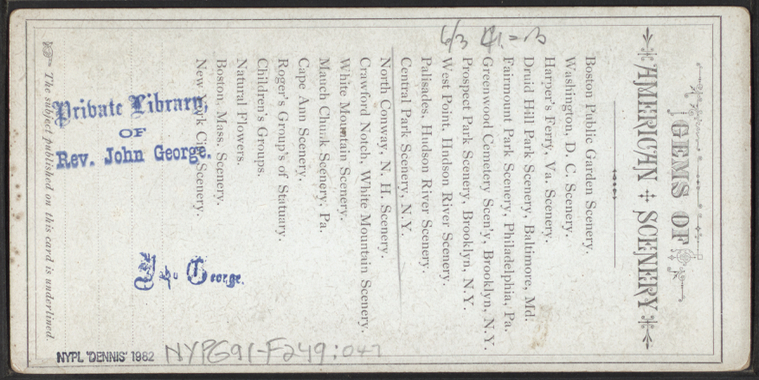 GEMS OF
AMERICAN SCENERY
Boston Public Garden Scenery.
Washington, D. C. Scenery.
Harper's Ferry, Va. Scenery.
Druid Hill Park Scenery, Baltimore, Md.
Fairmount Park Scenery, Philadelphia, Pa.
Greenwood Cemetery Scen'y, Brooklyn, N. Y.
Prospect Park Scenery, Brooklyn, N. Y.
West Point, Hudson River Scenery.
Palisades, Hudson River Scenery.
Central Park Scenery, N. Y.
North Conway, N. H. Scenery.
Crawford Notch, White Mountain Scenery.
White Mountain Scenery.
Mauch Chunk Scenery, Pa.
Cape Ann Scenery.
Roger's Group's of Statuary.
Children's Groups.
Natural Flowers.
Boston, Mass. Scenery.
New York City Scenery.
The subject published on this card is underlined.
Private Library
OF
Rev. John George.
Jno George.
NYPL 'DENNIS' 1982
NYPG91-F249:047